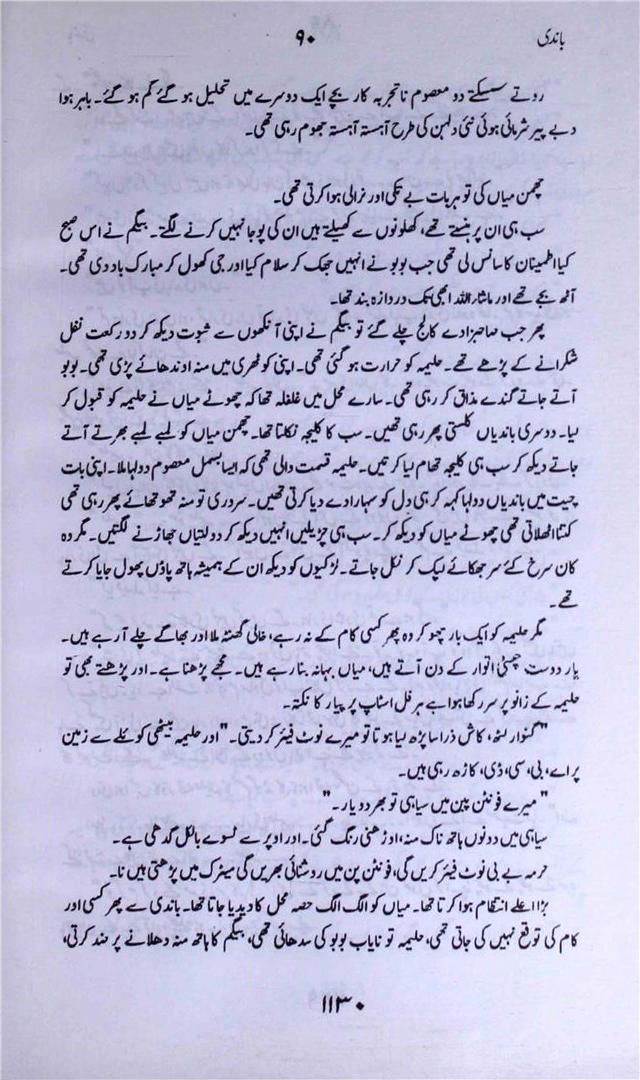 باندی
۹۰
روتے سسکتے دو معصوم ناتجربہ کار بچے ایک دوسرے میں تحلیل ہو گئے گم ہو گئے۔ باہر ہوا
دبے پیر شرمائی ہوئی نئی دلہن کی طرح آہستہ آہستہ جھوم رہی تھی۔
چھمن میاں کی تو ہر بات بے تکی اور نرالی ہوا کرتی تھی۔
سب ہی ان پر ہنستے تھے، کھلونوں سے کھیلتے ہیں ان کی پوجا نہیں کرنے لگتے۔ بیگم نے اس صبح
کیا اطمینان کا سانس لی تھی جب بوبو نے انہیں جھک کر سلام کیا اور جی کھول کر مبارک باد دی تھی۔
آٹھ بجے تھے اور ماشاء اللہ ابھی تک دروازہ بند تھا۔
پھر جب صاحبزادے کالج چلے گئے تو بیگم نے اپنی آنکھوں سے ثبوت دیکھ کر دو رکعت نفل
شکرانے کے پڑھے تھے۔ حلیمہ کو حرارت ہو گئی تھی۔ اپنی کوٹھری میں منہ اوندھائے پڑی تھی۔ بوبو
آتے جاتے گندے مذاق کر رہی تھی۔ سارے محل میں غلغلہ تھا کہ چھوٹے میاں نے حلیمہ کو قبول کر
لیا۔ دوسری باندیاں کلستی پھر رہی تھیں۔ سب کا کلیجہ نکلتا تھا۔ چھمن میاں کو لمبے لمبے بھرتے آتے
جاتے دیکھ کر سب ہی کلیجہ تھام لیا کرتیں۔ حلیمہ قسمت والی تھی کہ ایسا بسمل معصوم دولہا ملا۔ اپنی بات
چیت میں باندیاں دولہا کہہ کر ہی دل کو سہارا دے دیا کرتی تھیں۔ سروری تو منہ تھوتھائے پھر رہی تھی
کتنا اٹھلاتی تھی چھوٹے میاں کو دیکھ کر۔ سب ہی چڑیلیں انہیں دیکھ کر دولتیاں جھاڑنے لگتیں۔ مگر وہ
کان سرخ کئے سر جھکائے لپک کر نکل جاتے۔ لڑکیوں کو دیکھ ان کے ہمیشہ ہاتھ پاؤں پھول جایا کرتے
تھے۔
مگر حلیمہ کو ایک بار چھو کر وہ پھر کسی کام کے نہ رہے، خالی گھنٹہ ملا اور بھاگے چلے آ رہے ہیں۔
یار دوست چھٹی اتوار کے دن آتے ہیں، میاں بہانہ بنا رہے ہیں۔ مجھے پڑھنا ہے۔ اور پڑھتے بھی تو
حلیمہ کے زانو پر سر رکھا ہوا ہے ہر فل اسٹاپ پر پیار کا نکتہ۔
"گنوار لٹھ، کاش ذرا سا پڑھ لیا ہوتا تو میرے نوٹ فیئر کر دیتی۔" اور حلیمہ بیٹھی کوئلے سے زمین
پر اے، بی، سی، ڈی، کاڑھ رہی ہیں۔
"میرے فونٹن پین میں سیاہی تو بھر دو یار۔"
سیاہی میں دونوں ہاتھ ناک منہ، اوڑھنی رنگ گئی۔ اور اوپر سے ٹسوے بالکل گدھی ہے۔
حرمہ بے بی نوٹ فیئر کریں گی، فونٹن پن میں روشنائی بھریں گی میٹرک میں پڑھتی ہیں نا۔
بڑا اعلےٰ انتظام ہوا کرتا تھا۔ میاں کو الگ الگ حصہ محل کا دیدیا جاتا تھا۔ باندی سے پھر کسی اور
کام کی توقع نہیں کی جاتی تھی، حلیمہ تو نایاب بوبو کی سدھائی تھی، بیگم کا ہاتھ منہ دھلانے پر ضد کرتی،
۱۱۳۰